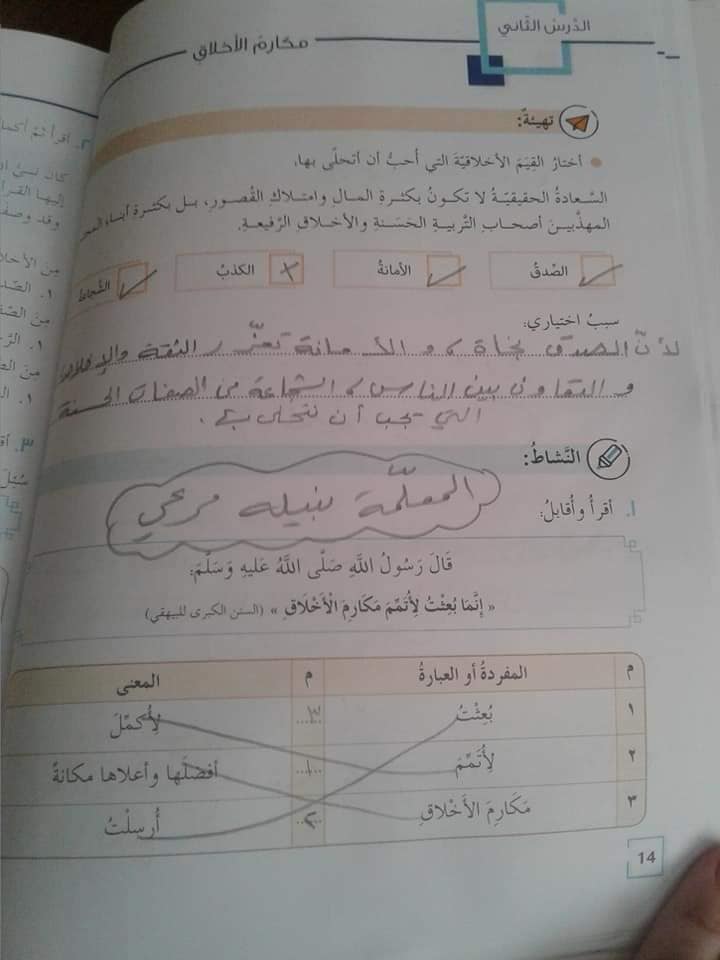 الدّرس الثّاني
مكارم الأخلاق
تهيئةٌ:
أختارُ القِيَمَ الأخلاقيّةَ التي أُحبُّ أن أتحلّى بها.
السَّعادةُ الحقيقيّةُ لا تكونُ بكثرةِ المالِ وامتلاكِ القُصورِ، بـل بكثـرةِ أبنـاء
المهذَّبيـنَ أصحـابِ التَّربيـةِ الحَسَـنةِ والأخـلاقِ الرَّفيعةِ.
الصّدقُ ✓ الأمانةُ ✓ الكذبُ × الشّجاعة ✓
سببُ اختياري:
لأنّ الصدق نجاة، و الأمانة تعزّز الثقة والإخلاص
و التعاون بين الناس، الشجاعة من الصفات الحسنة
التي يجب أن نتحلى بها.
النَّشاطُ:
١. أقرأُ وأُقابلُ:
المعلّمة نبيله مرعي
قَالَ رَسُولُ اللَّهِ صَلَّى اللَّهُ عَليهِ وَسَلَّمَ:
« إِنَّمَا بُعِثْتُ لِأُتَمِّمَ مَكَارِمَ الْأَخْلَاقِ » (السنن الكبرى للبيهقي)
م المفردةُ أو العبارةُ م المعنى
١ بُعِثْتُ ..٣.. لِأُكمِّلَ
٢ لِأُتَمِّمَ ..١.. أفضلَها وأعلاها مكانةً
٣ مَكَارِمَ الأَخْلاقِ ..٢.. أُرسِلْتُ
14